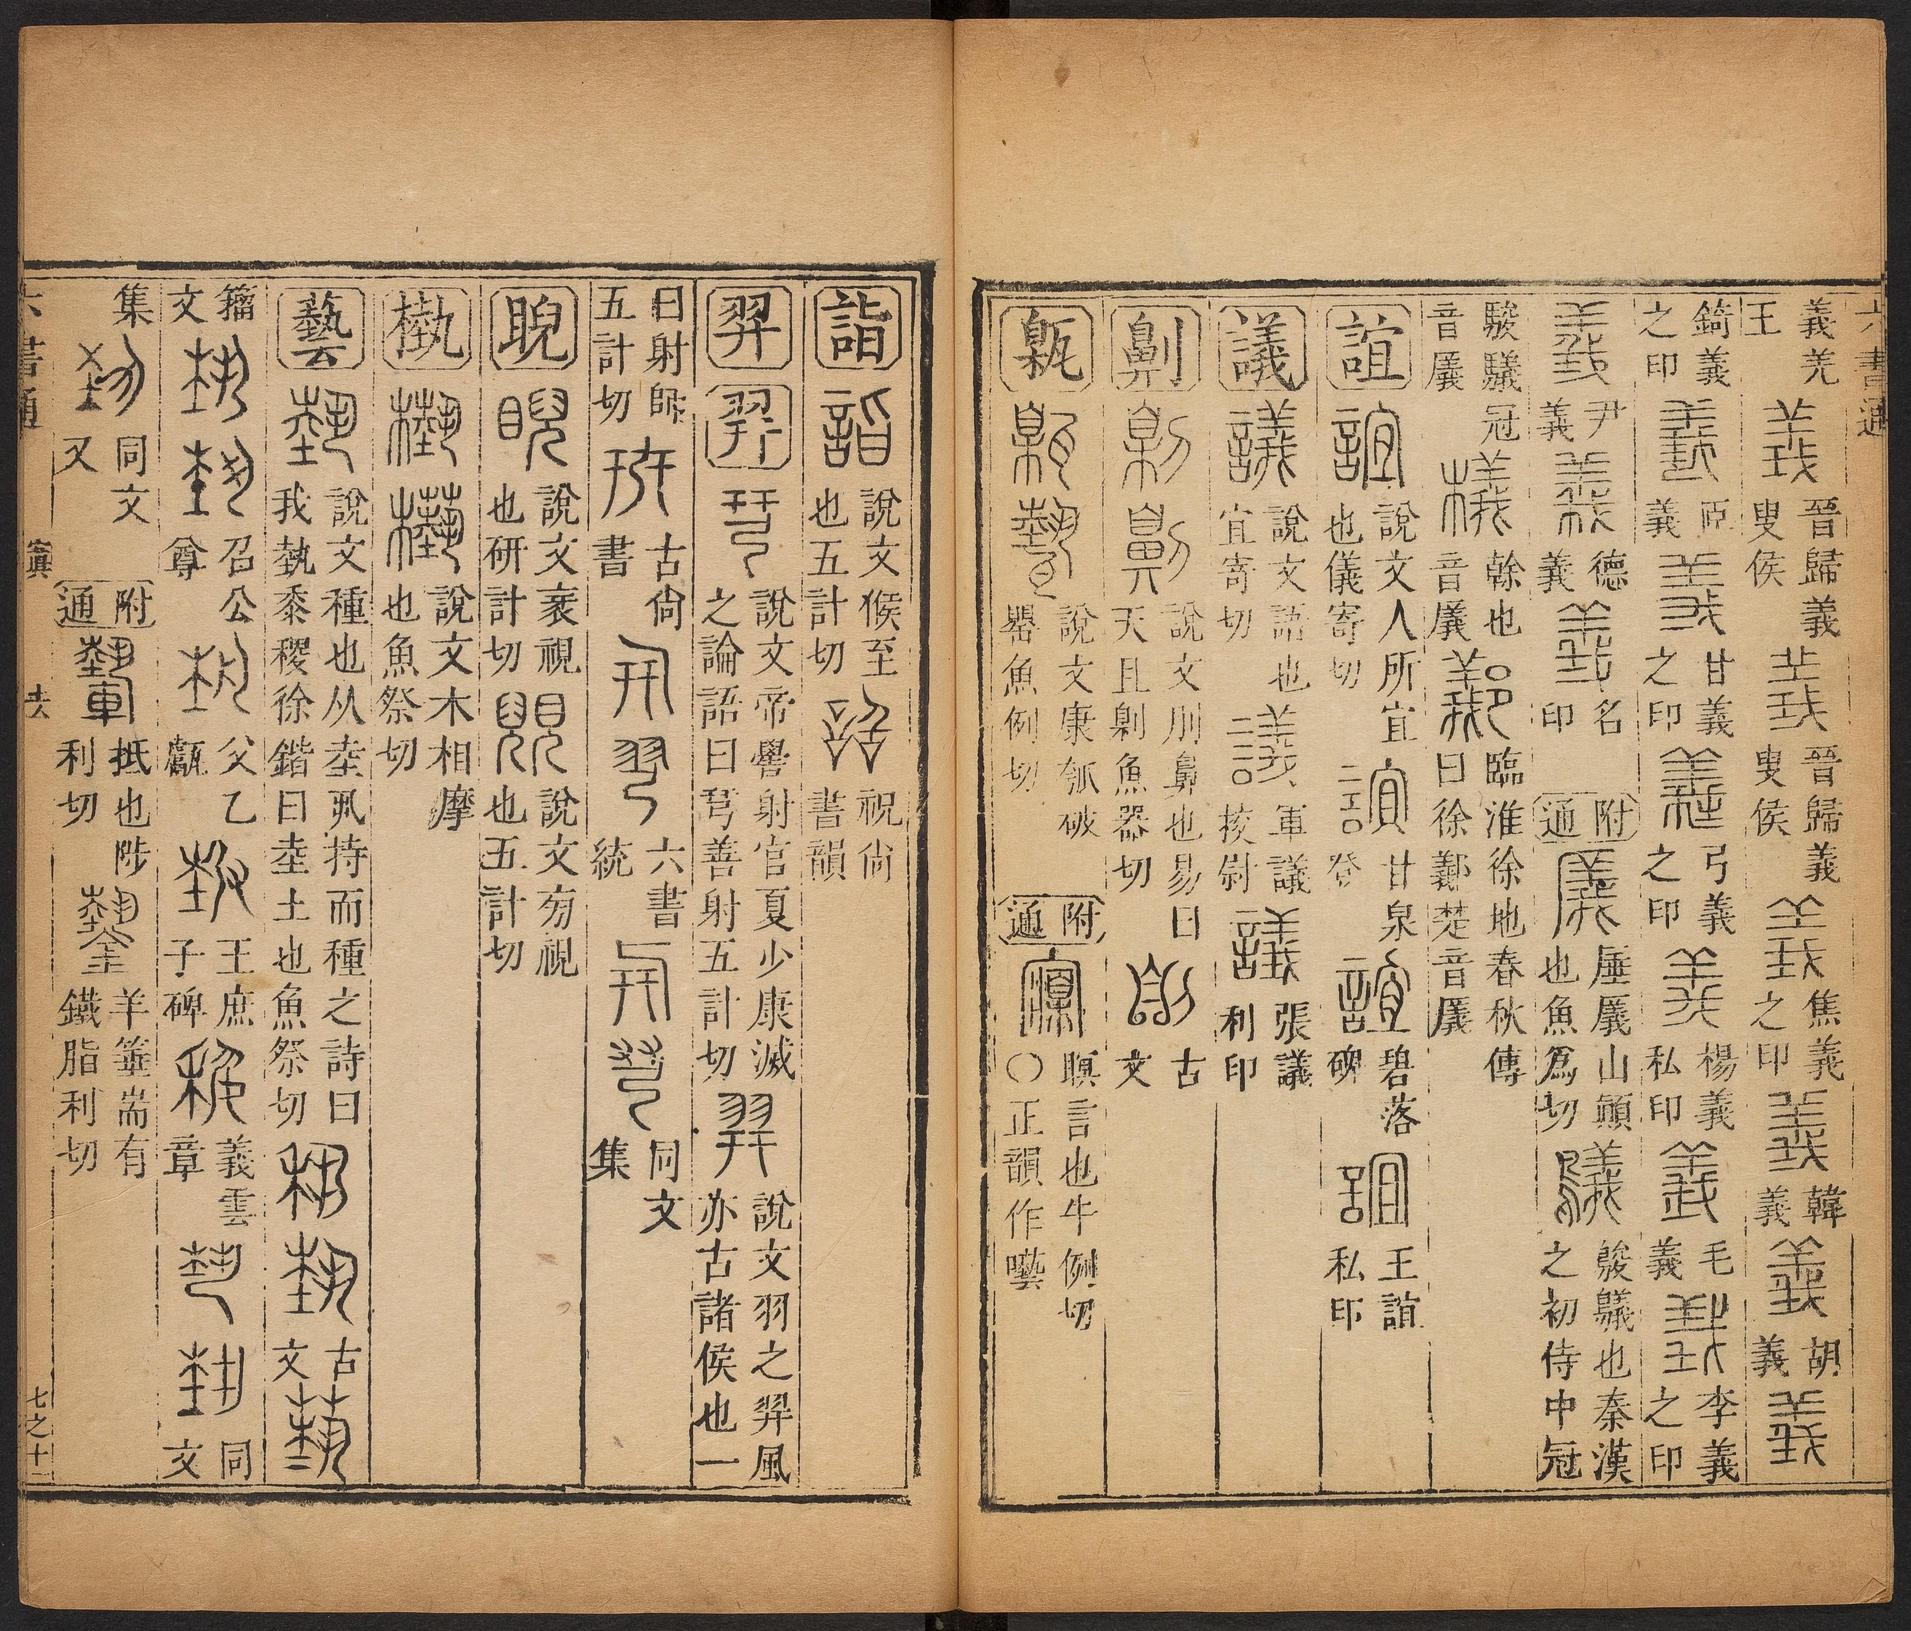 六書通
義羌王 晉歸義叟侯 晉歸義叟侯 焦義之印 韓義 胡義
錡義之印 臣義 甘義之印 弓義之印 楊義私印 毛義 李義之印
尹義 德義 名印 附通 厜㕒山顚也魚爲切 鵔鸃也秦漢之初侍中冠
鵔鸃冠音㕒 榦也音㕒 臨淮徐地春秋傳曰徐鄦楚音㕒
誼 說文人所宜也儀寄切 甘泉 碧落碑 王誼私印
議 說文語也宜寄切 軍議 張議利印
劓 說文刖鼻也易曰天且劓魚器切 古文
甈 說文康瓠破罌魚例切 附通 瞑言也牛例切○正韻作囈
詣 說文候至也五計切 祝尙書韻
羿 羿 說文帝嚳射官夏少康滅之論語曰羿善射五計切 說文羽之羿風亦古諸侯也一
曰射師五計切 古尙書 六書統 同文集
睨 說文衺視也研計切 說文旁視也五計切
槸 說文木相摩也魚祭切
藝 說文種也从坴丮持而種之詩曰我埶黍稷徐鍇曰坴土也魚祭切 古文
籀文 召公尊 父乙甗 王庶子碑 義雲章 同文
集 同文 又 附通 抵也陟利切 羊箠耑有鐵脂利切
六書通 寘 去 七之十一